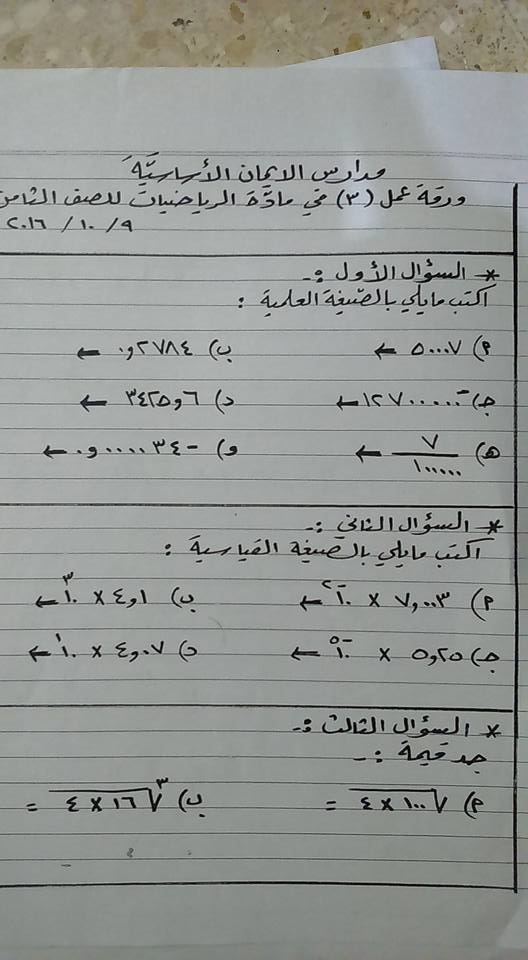 مدارس الإيمان الأساسيّة
ورقة عمل (٣) في مادّة الرياضيات للصف الثامن
٩ / ١٠ / ٢٠١٦
* السؤال الأول :-
اكتب ما يلي بالصّيغة العلمية :
م) ٥٠٠٠٧ ← ب) ٢٧٨٤و٠ ←
جـ) -١٢٧٠٠٠٠٠ ← د) ٦و٣٤٢٥ ←
هـ) ٧/١٠٠٠٠٠ ← و) -٠٠٠٠٣٤و٠ ←
* السؤال الثاني :-
اكتب ما يلي بالصّيغة القياسية :
م) ٧,٠٠٣ × ١٠⁻² ← ب) ١و٤ × ١٠³ ←
جـ) ٢٥و٥ × ١٠⁻⁵ ← د) ٠٧و٤ × ١٠¹ ←
* السؤال الثالث :-
جد قيمة :-
م) √١٠٠ × ٤ = ب) ³√١٦ × ٤ =